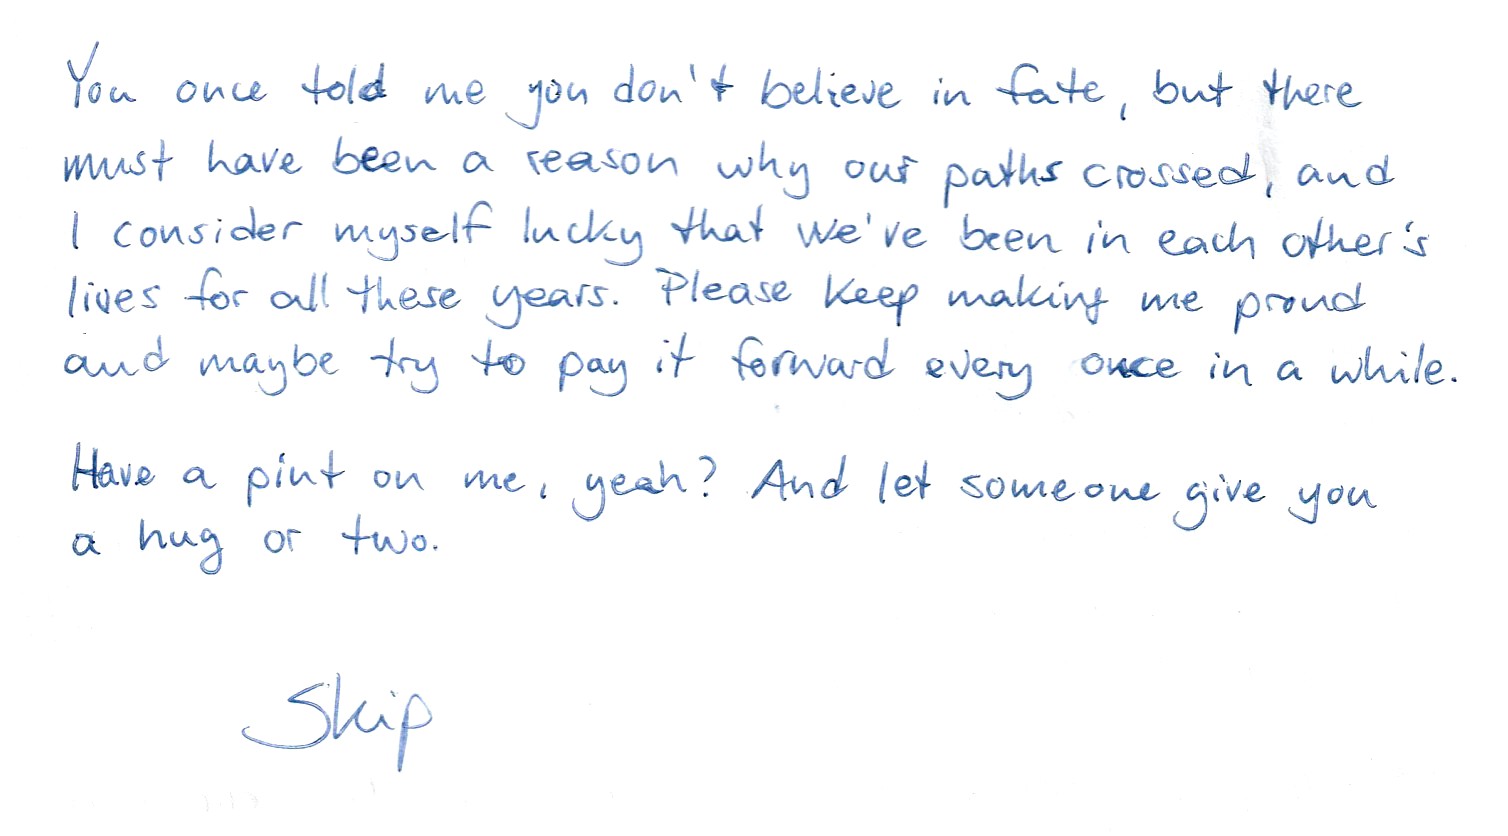 You once told me you don't believe in fate, but there
must have been a reason why our paths crossed, and
I consider myself lucky that we've been in each other's
lives for all these years. Please keep making me proud
and maybe try to pay it forward every once in a while.
Have a pint on me, yeah? And let someone give you
a hug or two.
Skip